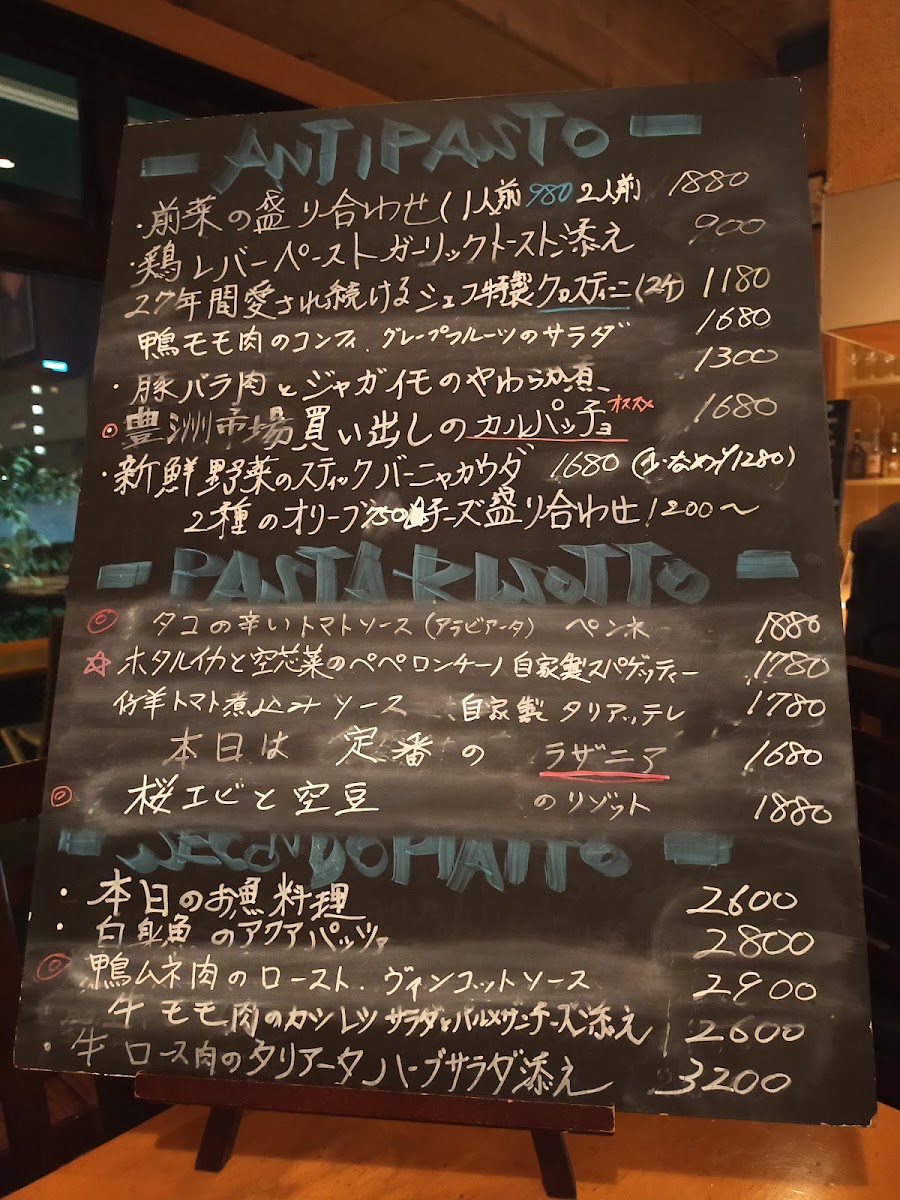 - ANTIPASTO -
・前菜の盛り合わせ(1人前 980 2人前 1880
・鶏レバーペーストガーリックトースト添え 900
27年間愛され続けるシェフ特製クロスティーニ(2ケ) 1180
鴨モモ肉のコンフィ.グレープフルーツのサラダ 1680
・豚バラ肉とジャガイモのやわらか煮 1300
◎豊洲市場買い出しのカルパッチョ オススメ 1680
・新鮮野菜のスティックバーニャカウダ 1680 1280)
2種のオリーブ750 チーズ盛り合わせ 1200〜
- PASTA RISOTTO -
◎ タコの辛いトマトソース(アラビアータ) ペンネ 1880
☆ホタルイカと空芯菜のペペロンチーノ自家製スパゲッティー 1780
仔羊トマト煮込みソース 自家製タリアッテレ 1780
本日は 定番の ラザニア 1680
◎ 桜エビと空豆 のリゾット 1880
- SECONDOPIATTO -
・本日のお魚料理 2600
・白身魚のアクアパッツァ 2800
◎鴨ムネ肉のロースト.ヴィンコットソース 2900
牛モモ肉のカツレツ サラダとパルメザンチーズ添え 2600
・牛ロース肉のタリアータハーブサラダ添え 3200